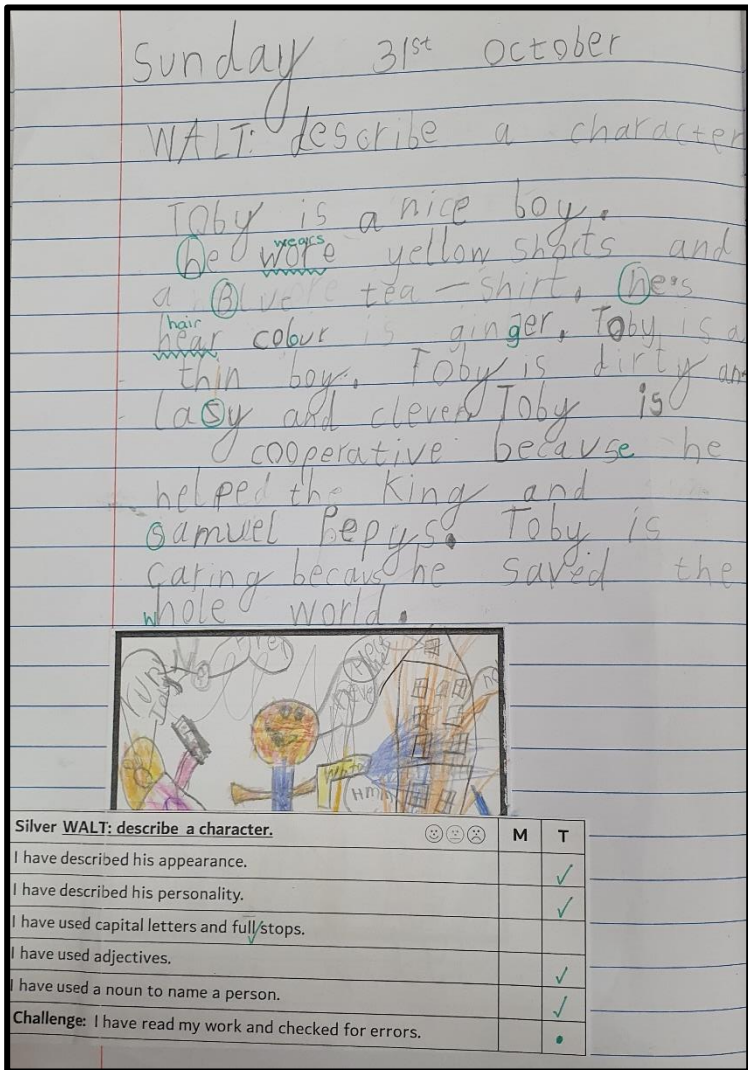 Sunday 31st October
WALT: describe a character
Toby is a nice boy.
wears
he wore yellow shorts and
a Blue tea-shirt. he's
hair
hear colour is ginger. Toby is a
thin boy. Toby is dirty an
lasy and clever Toby is
cooperative because he
helped the King and
samuel Pepys. Toby is
caring becaus he saved the
whole world.
Run
Help
Water
Hmm
Silver WALT: describe a character. M T
I have described his appearance. ✓
I have described his personality. ✓
I have used capital letters and full stops.
I have used adjectives. ✓
I have used a noun to name a person. ✓
Challenge: I have read my work and checked for errors. •